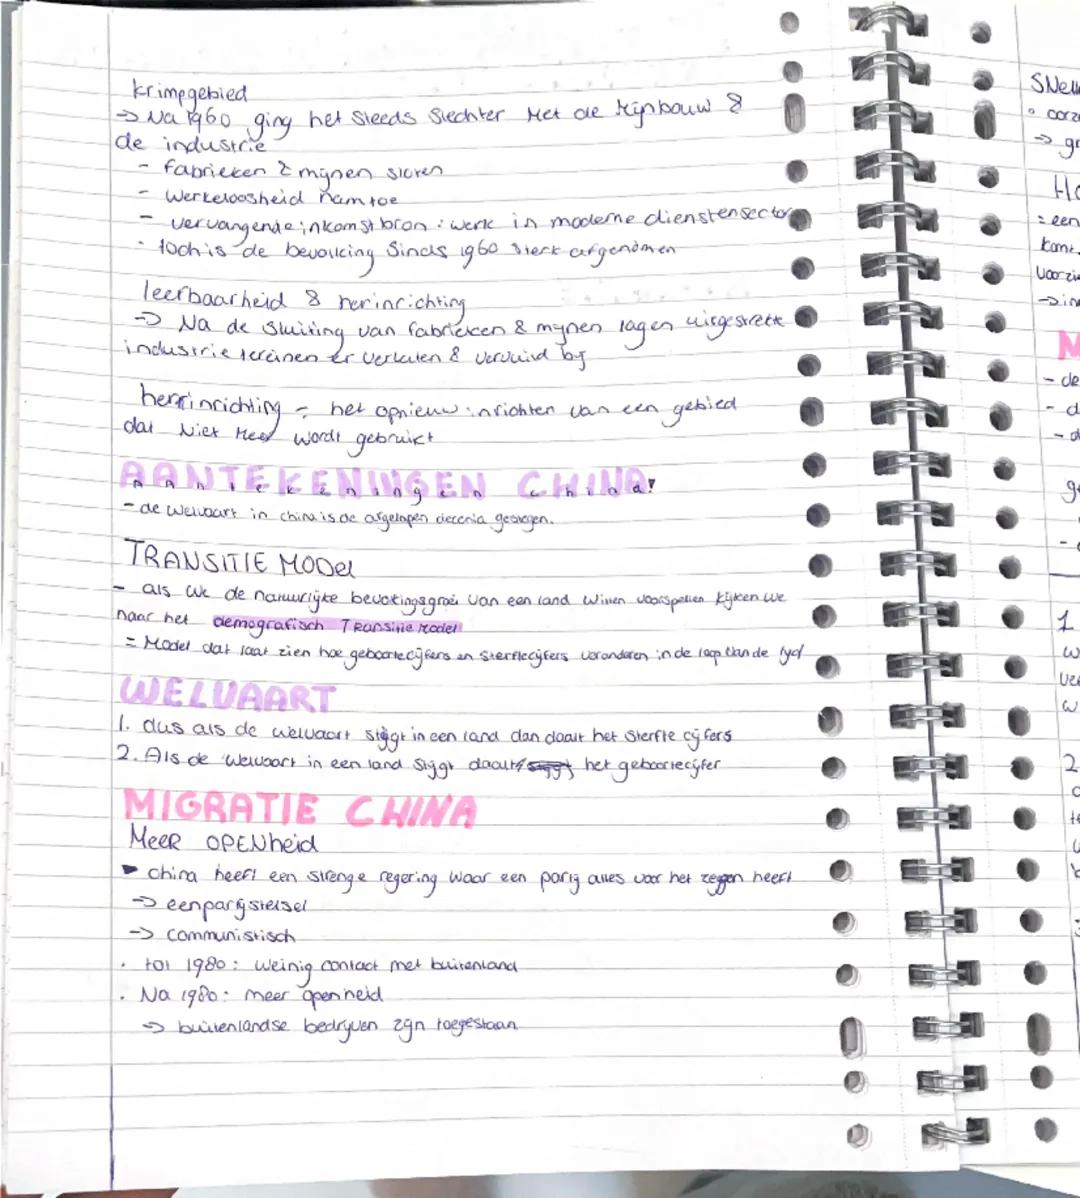 krimpgebied
→ Na 1960 ging het steeds slechter met de mijnbouw &
de industrie
- fabrieken & mijnen sloten
- werkeloosheid nam toe
- vervangende inkomstbron : werk in moderne dienstensector
· toch is de bevolking sinds 1960 sterk afgenomen
leefbaarheid & herinrichting
→ Na de sluiting van fabrieken & mijnen lagen uitgestrekte
industrie tereinen er verlaten & vervuild bij
herrinrichting = het opnieuw inrichten van een gebied
dat niet meer wordt gebruikt
AANTEKENINGEN CHINA!
- de welvaart in china is de afgelopen decenia gestegen.
TRANSITIE MODEL
- als we de natuurlijke bevolkingsgroei van een land willen voorspellen kijken we
naar het demografisch Transitie Model
= Model dat laat zien hoe geboortecijfers en sterftecijfers veranderen in de loop van de tijd
WELVAART
1. dus als de welvaart stijgt in een land dan daalt het sterfte cijfers
2. Als de welvaart in een land stijgt daalt het geboortecijfer
MIGRATIE CHINA
MEER OPENheid
▸ china heeft een strenge regering waar een partij alles voor het zeggen heeft
→ eenpartijstelsel
→ communistisch
· tot 1980: weinig contact met buitenland
· Na 1980: meer openheid
→ buitenlandse bedrijven zijn toegestaan